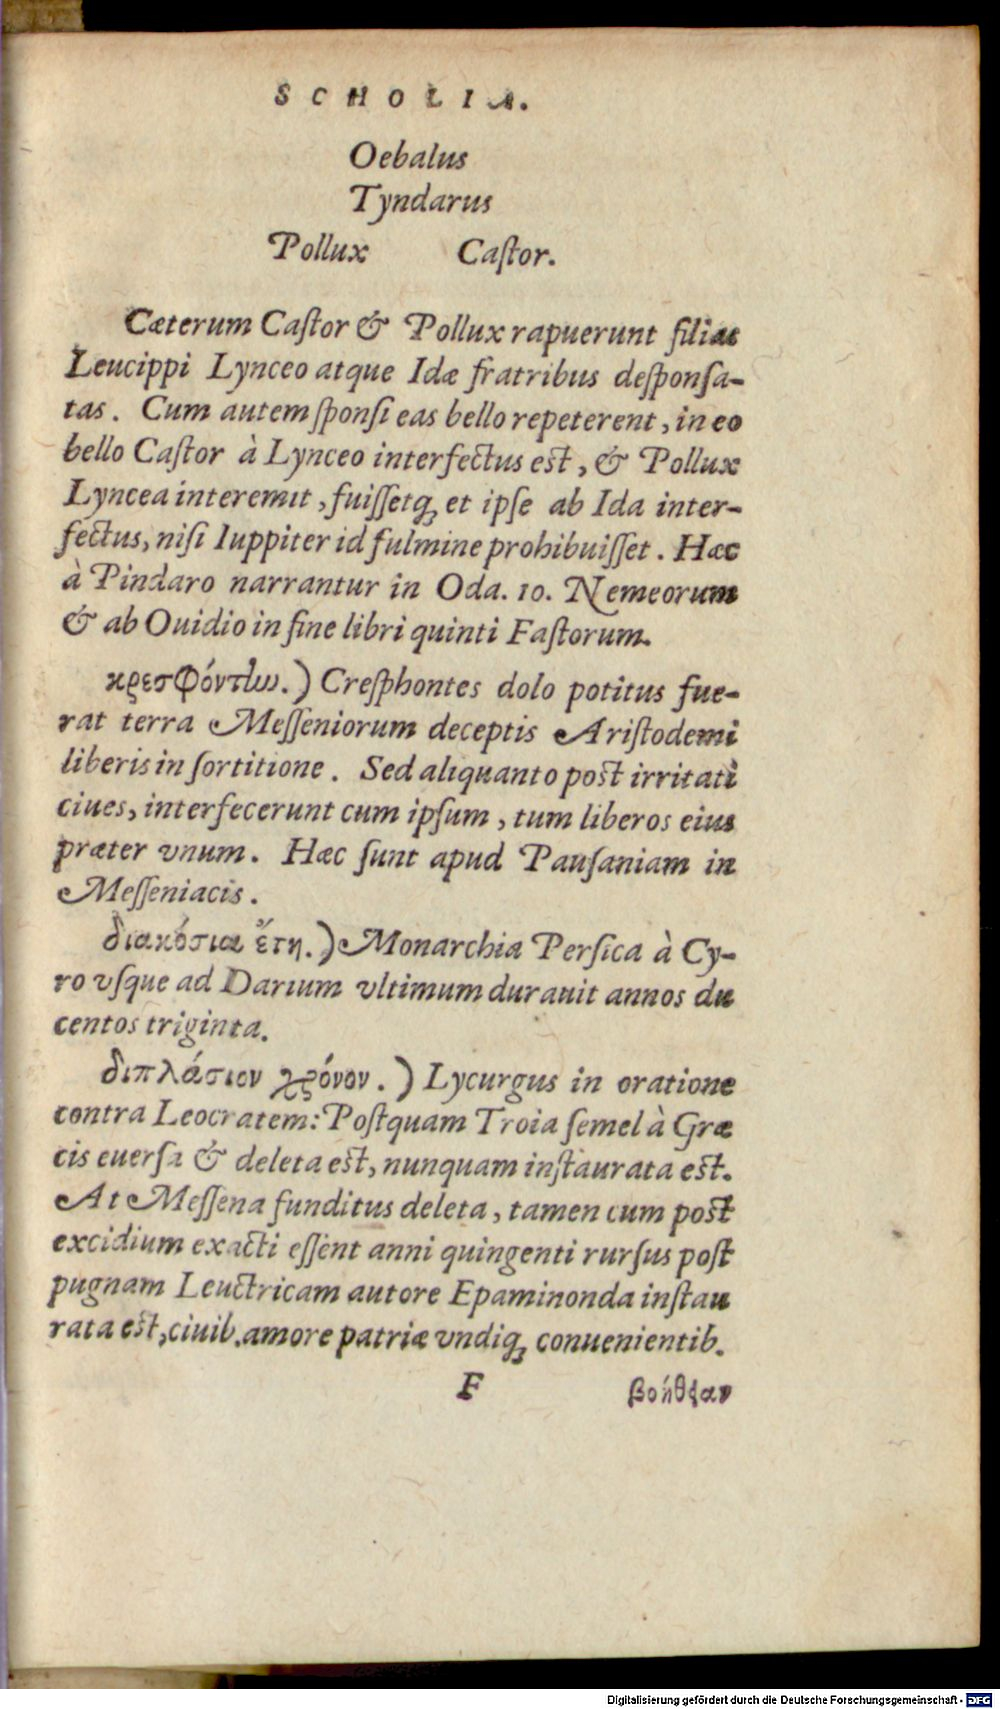 SCHOLIA.
Oebalus
Tyndarus
Pollux Castor.
Cæterum Castor & Pollux rapuerunt filias
Leucippi Lynceo atque Idæ fratribus desponsa-
tas. Cum autem sponsi eas bello repeterent, in eo
bello Castor à Lynceo interfectus est, & Pollux
Lyncea interemit, fuissetq́; et ipse ab Ida inter-
fectus, nisi Iuppiter id fulmine prohibuisset. Hæc
à Pindaro narrantur in Oda. 10. Nemeorum
& ab Ouidio in fine libri quinti Fastorum.
κρεσφόντην.) Cresphontes dolo potitus fue-
rat terra Messeniorum deceptis Aristodemi
liberis in sortitione. Sed aliquanto post irritati
ciues, interfecerunt cum ipsum, tum liberos eius
præter vnum. Hæc sunt apud Pausaniam in
Messeniacis.
διακόσια ἔτη.) Monarchia Persica à Cy-
ro vsque ad Darium vltimum durauit annos du
centos triginta.
διπλάσιον χρόνον.) Lycurgus in oratione
contra Leocratem: Postquam Troia semel à Græ
cis euersa & deleta est, nunquam instaurata est.
At Messena funditus deleta, tamen cum post
excidium exacti essent anni quingenti rursus post
pugnam Leuctricam autore Epaminonda instau
rata est, ciuib. amore patriæ vndiq; conuenientib.
F βοήθειαν
Digitalisierung gefördert durch die Deutsche Forschungsgemeinschaft - DFG